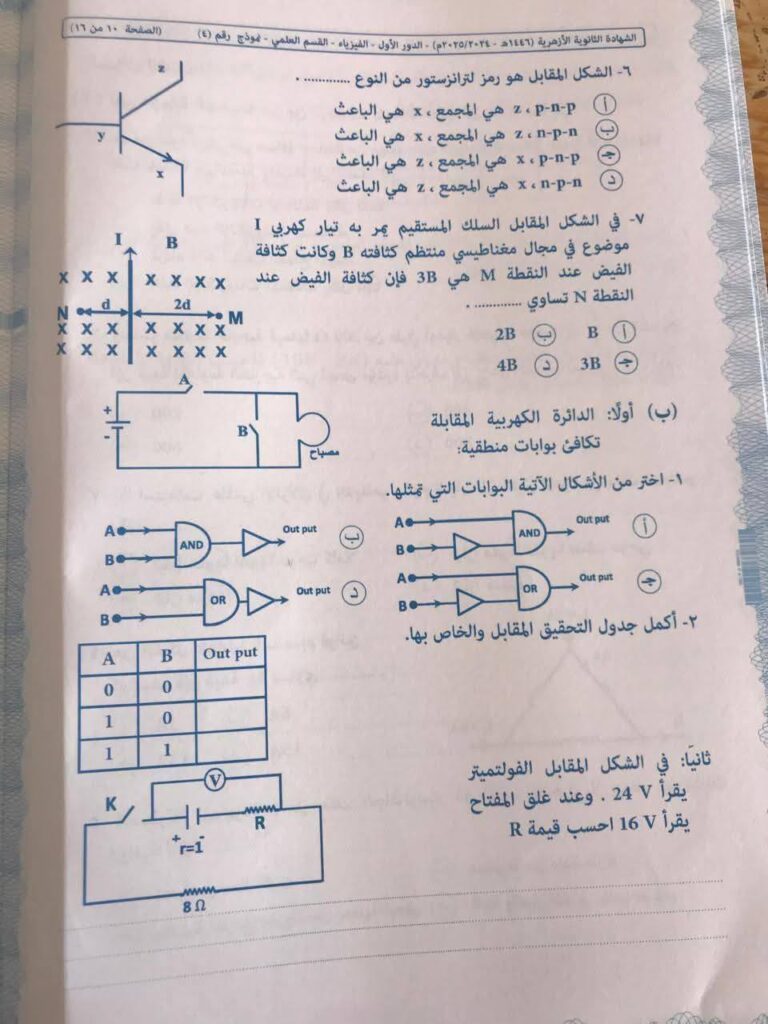 الشهادة الثانوية الأزهرية (١٤٤٦هـ - ٢٠٢٤/ ٢٠٢٥م) - الدور الأول - الفيزياء - القسم العلمي - نموذج رقم (٤) (الصفحة ١٠ من ١٦)
٦- الشكل المقابل هو رمز لترانزستور من النوع ............. .
أ z ، p-n-p هي المجمع ، x هي الباعث
ب z ، n-p-n هي المجمع ، x هي الباعث
جـ x ، p-n-p هي المجمع ، z هي الباعث
د x ، n-p-n هي المجمع ، z هي الباعث
z
y
x
٧- في الشكل المقابل السلك المستقيم يمر به تيار كهربي I
موضوع في مجال مغناطيسي منتظم كثافته B وكانت كثافة
الفيض عند النقطة M هي 3B فإن كثافة الفيض عند
النقطة N تساوي ............. .
أ B ب 2B
جـ 3B د 4B
I B
X X X X X X X
N d 2d M
X X X X X X X
X X X X X X X
(ب) أولًا: الدائرة الكهربية المقابلة
تكافئ بوابات منطقية:
A
+
-
B
مصباح
١- اختر من الأشكال الآتية البوابات التي تمثلها.
أ A B AND Out put
ب A B AND Out put
جـ A B OR Out put
د A B OR Out put
٢- أكمل جدول التحقيق المقابل والخاص بها.
A B Out put
0 0
1 0
1 1
ثانيًا: في الشكل المقابل الفولتميتر
يقرأ 24 V . وعند غلق المفتاح
يقرأ 16 V احسب قيمة R
V
K
R
+ -
r=1
8 Ω